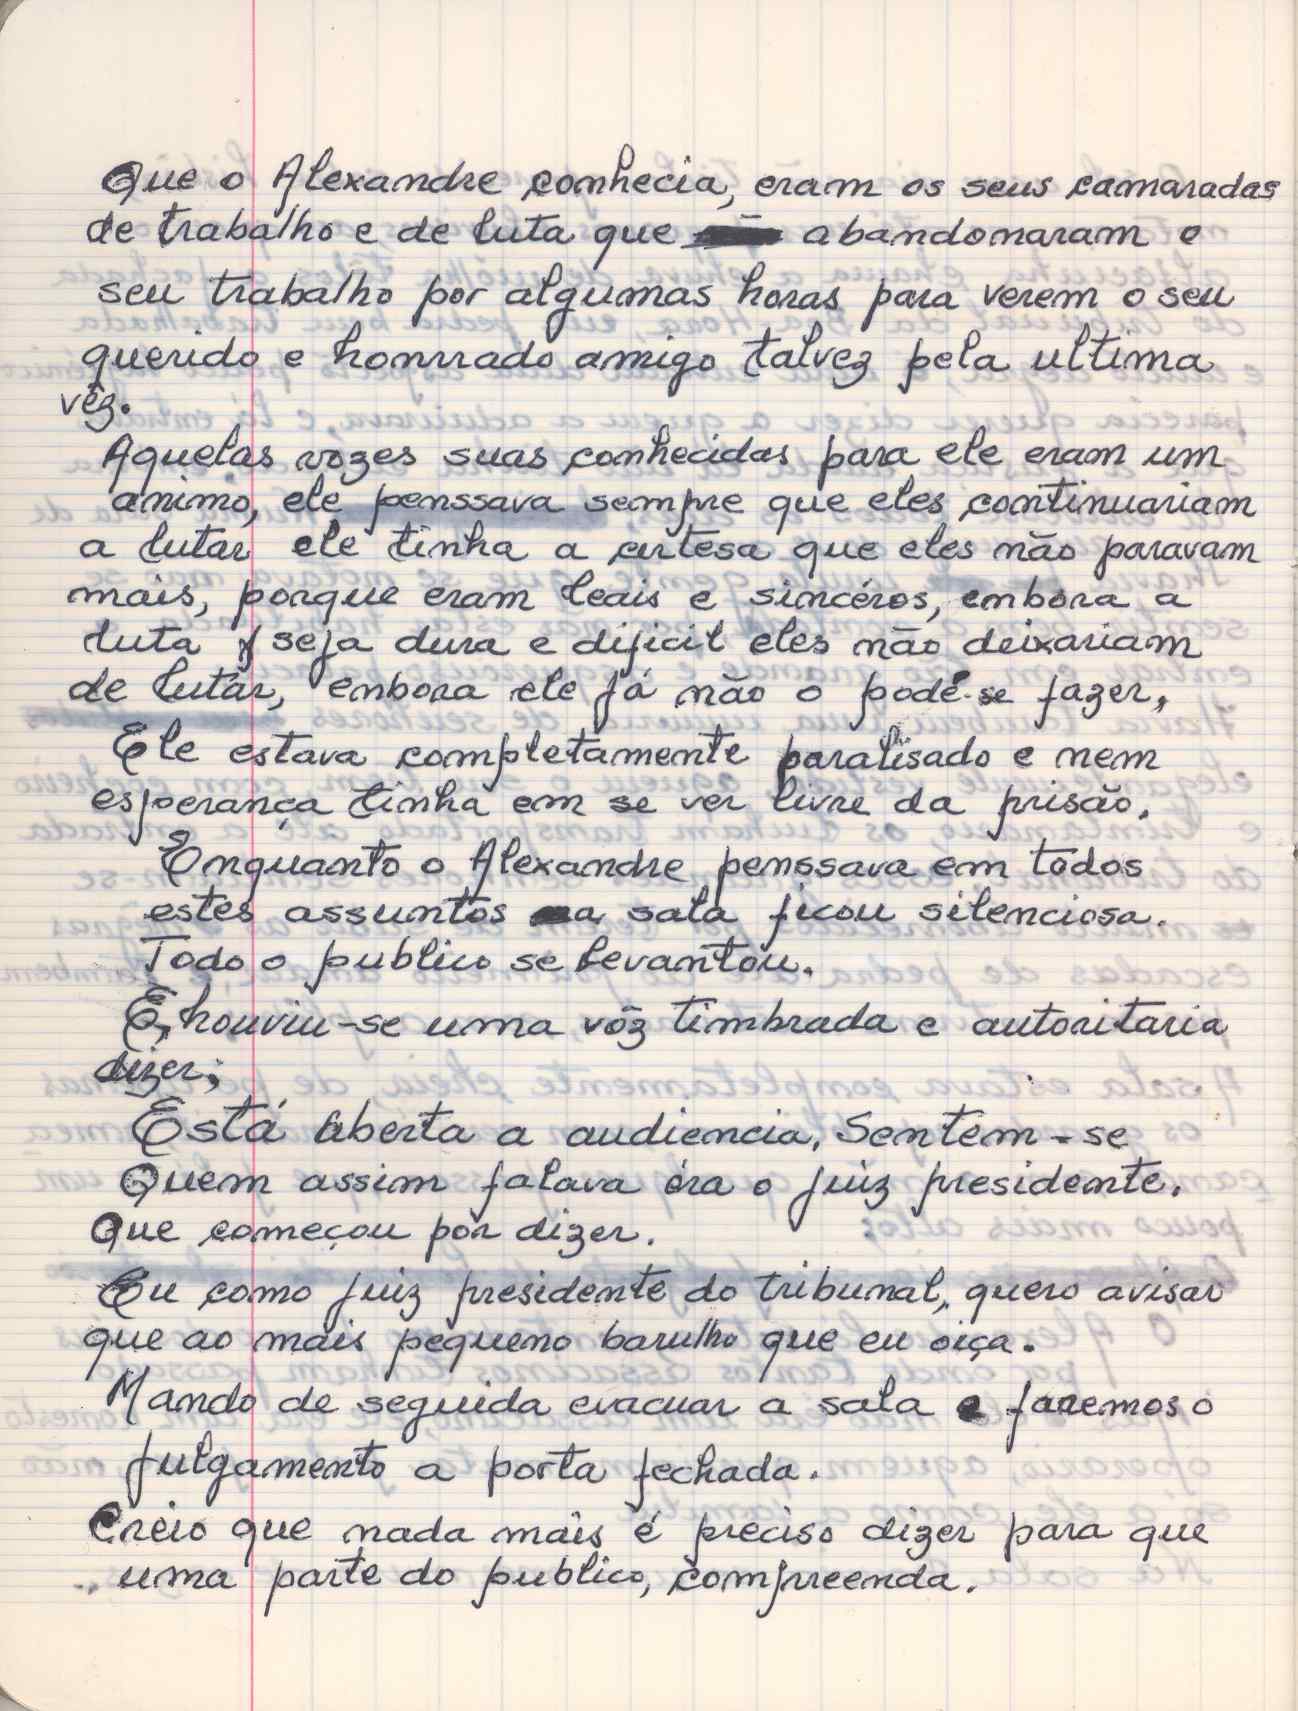 Que o Alexandre conhecia, eram os seus camaradas
de trabalho e de luta que abandonaram o
seu trabalho por algumas horas para verem o seu
querido e honrrado amigo talvez pela ultima
vêz.
Aquelas vozes suas conhecidas para ele eram um
animo, ele penssava sempre que eles continuariam
a lutar ele tinha a certesa que eles não paravam
mais, porque eram leais e sincéros, embora a
luta seja dura e dificil eles não deixariam
de lutar, embora ele já não o podé-se fazer,
Ele estava completamente paralisado e nem
esperança tinha em se ver livre da prisão,
Enquanto o Alexandre penssava em todos
estes assuntos a sala ficou silenciosa.
Todo o publico se levantou.
E, houviu-se uma vôz timbrada e autoritaria
dizer;
Está aberta a audiencia, Sentem-se
Quem assim falava éra o juiz presidente.
Que começou por dizer.
Eu como juiz presidente do tribunal, quero avisar
que ao mais pequeno barulho que eu oiça.
Mando de seguida evacuar a sala e faremos o
julgamento a porta fechada.
Creio que nada mais é preciso dizer para que
uma parte do publico, compreenda.